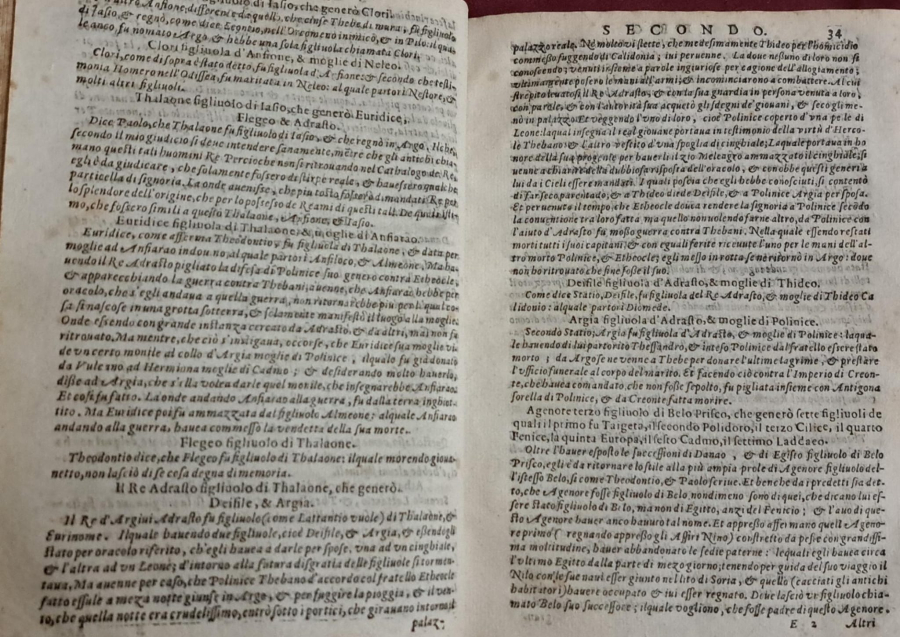 di Iasio, che generò Clori.
altro Anfione, differente da quello, che cinse Thebe di mura, fu figliuolo
di Iasio, & regnò, come dice Leontio, nell'Orcomeno inimico, & in Pilo: il qua-
le anco fu nomato Argo & hebbe una sola figliuola chiamata Clori.
Clori figliuola d'Anfione, & moglie di Neleo.
Clori, come di sopra è stato detto, fu figliuola d'Anfione: & secondo che testi-
monia Homero nell'Odissea, fu maritata in Neleo: al quale partorì Nestore, &
molti altri figliuoli.
Thalaone figliuolo di Iasio, che generò Euridice,
Flegeo & Adrasto.
Dice Paolo, che Thalaone fu figliuolo di Iasio, & che regnò in Argo. Il che,
secondo il mio giudicio si deve intendere sanamente, mercè che gli antichi chia-
mano questi tali huomini Re. Percioche non si ritrovando nel Cathalogo de i Re,
egli è da giudicare, che solamente fossero di stirpe reale, & havessero qualche
particella di signoria. La onde avenisse, che più tosto fossero dimandati Re per
lo splendore dell'origine, che per lo possesso de Reami di questi tali. De quali sti-
mo, che fossero simili a questo Thalaone, Anfione, & Iasio.
Euridice figliuola di Thalaone, & moglie di Anfiarao.
Euridice, come afferma Theodontio, fu figliuola di Thalaone, & data per
moglie ad Anfiarao indovino, al quale partorì Anfiloco, & Almeone. Ma ha-
vendo il Re Adrasto pigliato la difesa di Polinice suo genero contra Etheocle,
& apparecchiando la guerra contra Thebani, avenne, che Anfiarao hebbe per
oracolo, che s'egli andava a quella guerra, non ritornarebbe più. Per la qual co-
sa si nascose in una grotta sotterra, & solamente manifestò il luogo alla moglie.
Onde essendo con grande instanza cercato da Adrasto, & da altri, mai non fu
ritrovato. Ma mentre, che ciò s'indugiava, occorse, che Euridice sua moglie vi-
de un certo monile al collo d'Argia moglie di Polinice, il qualo fu già donato
da Vulcano ad Hermiona moglie di Cadmo; & desiderando molto haverlo,
disse ad Argia, che s'ella voleva darle quel monile, che insegnarebbe Anfiarao.
Et così fu fatto. La onde andando Anfiarao alla guerra, fu dalla terra inghiot-
tito. Ma Euridice poi fu ammazzata dal figliuolo Almeone: al quale Anfiarao
andando alla guerra, haveva commesso la vendetta della sua morte.
Flegeo figliuolo di Thalaone.
Theodontio dice, che Flegeo fu figliuolo di Thalaone: il quale morendo giova-
netto, non lasciò di se cosa degna di memoria.
Il Re Adrasto figliuolo di Thalaone, che generò.
Deifile, & Argia.
Il Re d'Argivi Adrasto fu figliuolo (come Lattantio vuole) di Thalaone, &
Eurinome. Il quale havendo due figliuole, cioè Deifile, & Argia, & essendogli
stato per oracolo riferito, ch'egli haveva a darle per spose, una ad un cinghiale,
& l'altra ad un Leone; d'intorno alla futura disgratia delle figliuole si tormen-
tava. Ma avenne per caso, che Polinice Thebano d'accordo col fratello Etheocle
fatto essule a meza notte giunse in Argo, & per fuggire la pioggia, & il ven-
to, che quella notte era crudelissimo, entrò sotto i portici, che giravano intorno il
palaz-
SECONDO. 34
palazzo reale. Ne molto vi stette, che medesimamente Thideo per l'homicidio
commesso fuggendo di Calidonia; ivi pervenne. La dove nessuno di loro non si
conoscendo, venuti insieme a parole ingiuriose per cagione dell'alloggiamento;
ultimamente posero le mani all'armi, & incominciarono a combattere. Al cui
strepito levatosi il Re Adrasto, & con la sua guardia in persona venuto a loro,
con parole, & con l'autorità sua acquetò gli sdegni de' giovani, & seco gli me-
nò in palazzo. Et veggendo l'uno di loro, cioè Polinice coperto d'una pelle di
Leone: la qual insegna il real giovane portava in testimonio della virtù d'Herco-
le Thebano; & l'altro vestito d'una spoglia di cinghiale; La quale portava in ho
nore della sua progenie per haver il zio Meleagro ammazzato il cinghiale; si
venne a chiarire della dubbiosa risposta dell'oracolo, & conobbe questi generi a
lui da i Cieli esser mandati. I quali poscia che egli hebbe conosciuti, si contentò
di far seco parentado, & a Thideo diede Deifile, & a Polinice Argia per sposa.
Et pervenuto il tempo, che Etheocle doveva rendere la signoria a Polinice secōdo
la conventione tra loro fatta ma quello non volendo farne altro, da Polinice con
l'aiuto d'Adrasto fu mosso guerra contra Thebani. Nella quale essendo restati
morti tutti i suoi capitani, & con eguali ferite ricevute l'uno per le mani dell'al-
tro morto Polinice, & Etheocle; egli messo in rotta se ne ritornò in Argo: dove
non ho ritrovato che fine fosse il suo.
Deifile figliuola d'Adrasto, & moglie di Thideo.
Come dice Statio, Deifile, fu figliuola del Re Adrasto, & moglie di Thideo Ca
lidonio: al quale partorì Diomede.
Argia figliuola d'Adrasto, & moglie di Polinice.
Secondo Statio, Argia fu figliuola d'Adrasto, & moglie di Polinice: la qua-
le havendo di lui partorito Thessandro, & inteso Polinice dal fratello essere stato
morto; da Argo se ne venne a Thebe per donare l'ultime lagrime, & prestare
l'ufficio funerale al corpo del marito. Et facendo ciò contra l'Imperio di Creon-
te, che haveva comandato, che non fosse sepolto, fu pigliata insieme con Antigona
sorella di Polinice, & da Creonte fatta morire.
Agenore terzo figliuolo di Belo Prisco, che generò sette figliuoli de
quali il primo fu Taigeta, il secondo Polidoro, il terzo Cilice, il quarto
Fenice, la quinta Europa, il sesto Cadmo, il settimo Laddaco.
Oltre l'haver esposto le successioni di Danao, & di Egisto figliuolo di Belo
Prisco, egli è da ritornare lo stile alla più ampia prole di Agenore figliuolo del-
l'istesso Belo, si come Theodontio, & Paolo scrive. Et benche da i predetti sia det-
to, che Agenore fosse figliuolo di Belo, nondimeno sono di quei, che dicano lui es-
sere stato figliuolo di Belo, ma non di Egitto, anzi del Fenicio; & l'avo di que-
sto Agenore haver anco havuto tal nome. Et appresso affermano quell'Ageno-
re primo (regnando appresso gli Assiri Nino) constretto da peste con grandissi-
ma moltitudine, haver abbandonato le sedie paterne: le quali egli haveva circa
l'ultimo Egitto dalla parte di mezo giorno; tenendo per guida del suo viaggio il
Nilo con le sue navi esser giunto nel lito di Soria, & quello (cacciati gli antichi
habitatori) havere occupato & ivi esser regnato. Dove lasciò un figliuolo chia-
mato Belo suo successore; il quale vogliono, che fosse padre di questo Agenore.
E 2 Altri